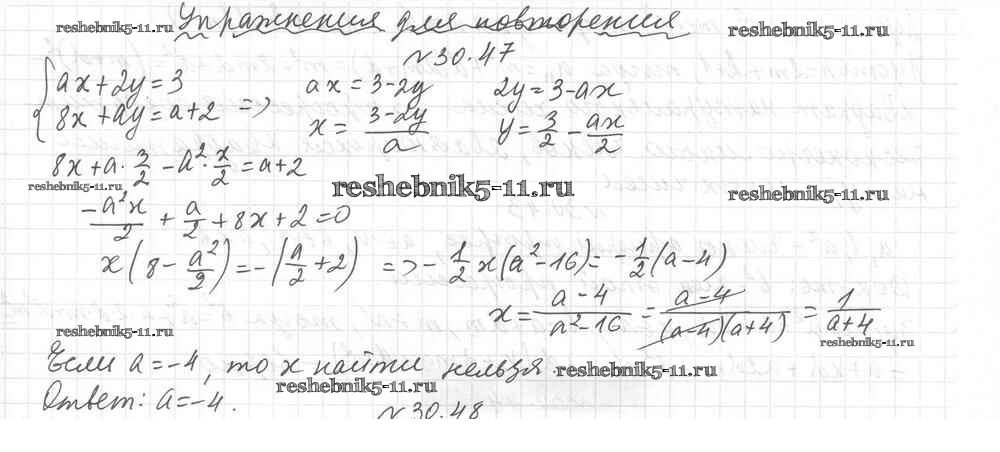 Упражнения для повторения
reshebnik5-11.ru reshebnik5-11.ru
№30.47
{ ax+2y=3
8x+ay=a+2 =>
ax=3-2y 2y=3-ax
x=(3-2y)/a y=3/2-ax/2
8x+a·3/2-a²·x/2=a+2
reshebnik5-11.ru reshebnik5-11.ru reshebnik5-11.ru
-a²x/2+a/2+8x+2=0
x(8-a²/2)=-(a/2+2) =>-1/2x(a²-16)=-1/2(a-4)
x=(a-4)/(a²-16)=(a-4)/((a-4)(a+4))=1/(a+4)
reshebnik5-11.ru reshebnik5-11.ru
Если a=-4, то x найти нельзя.
reshebnik5-11.ru
reshebnik5-11.ru
Ответ: a=-4.
№30.48